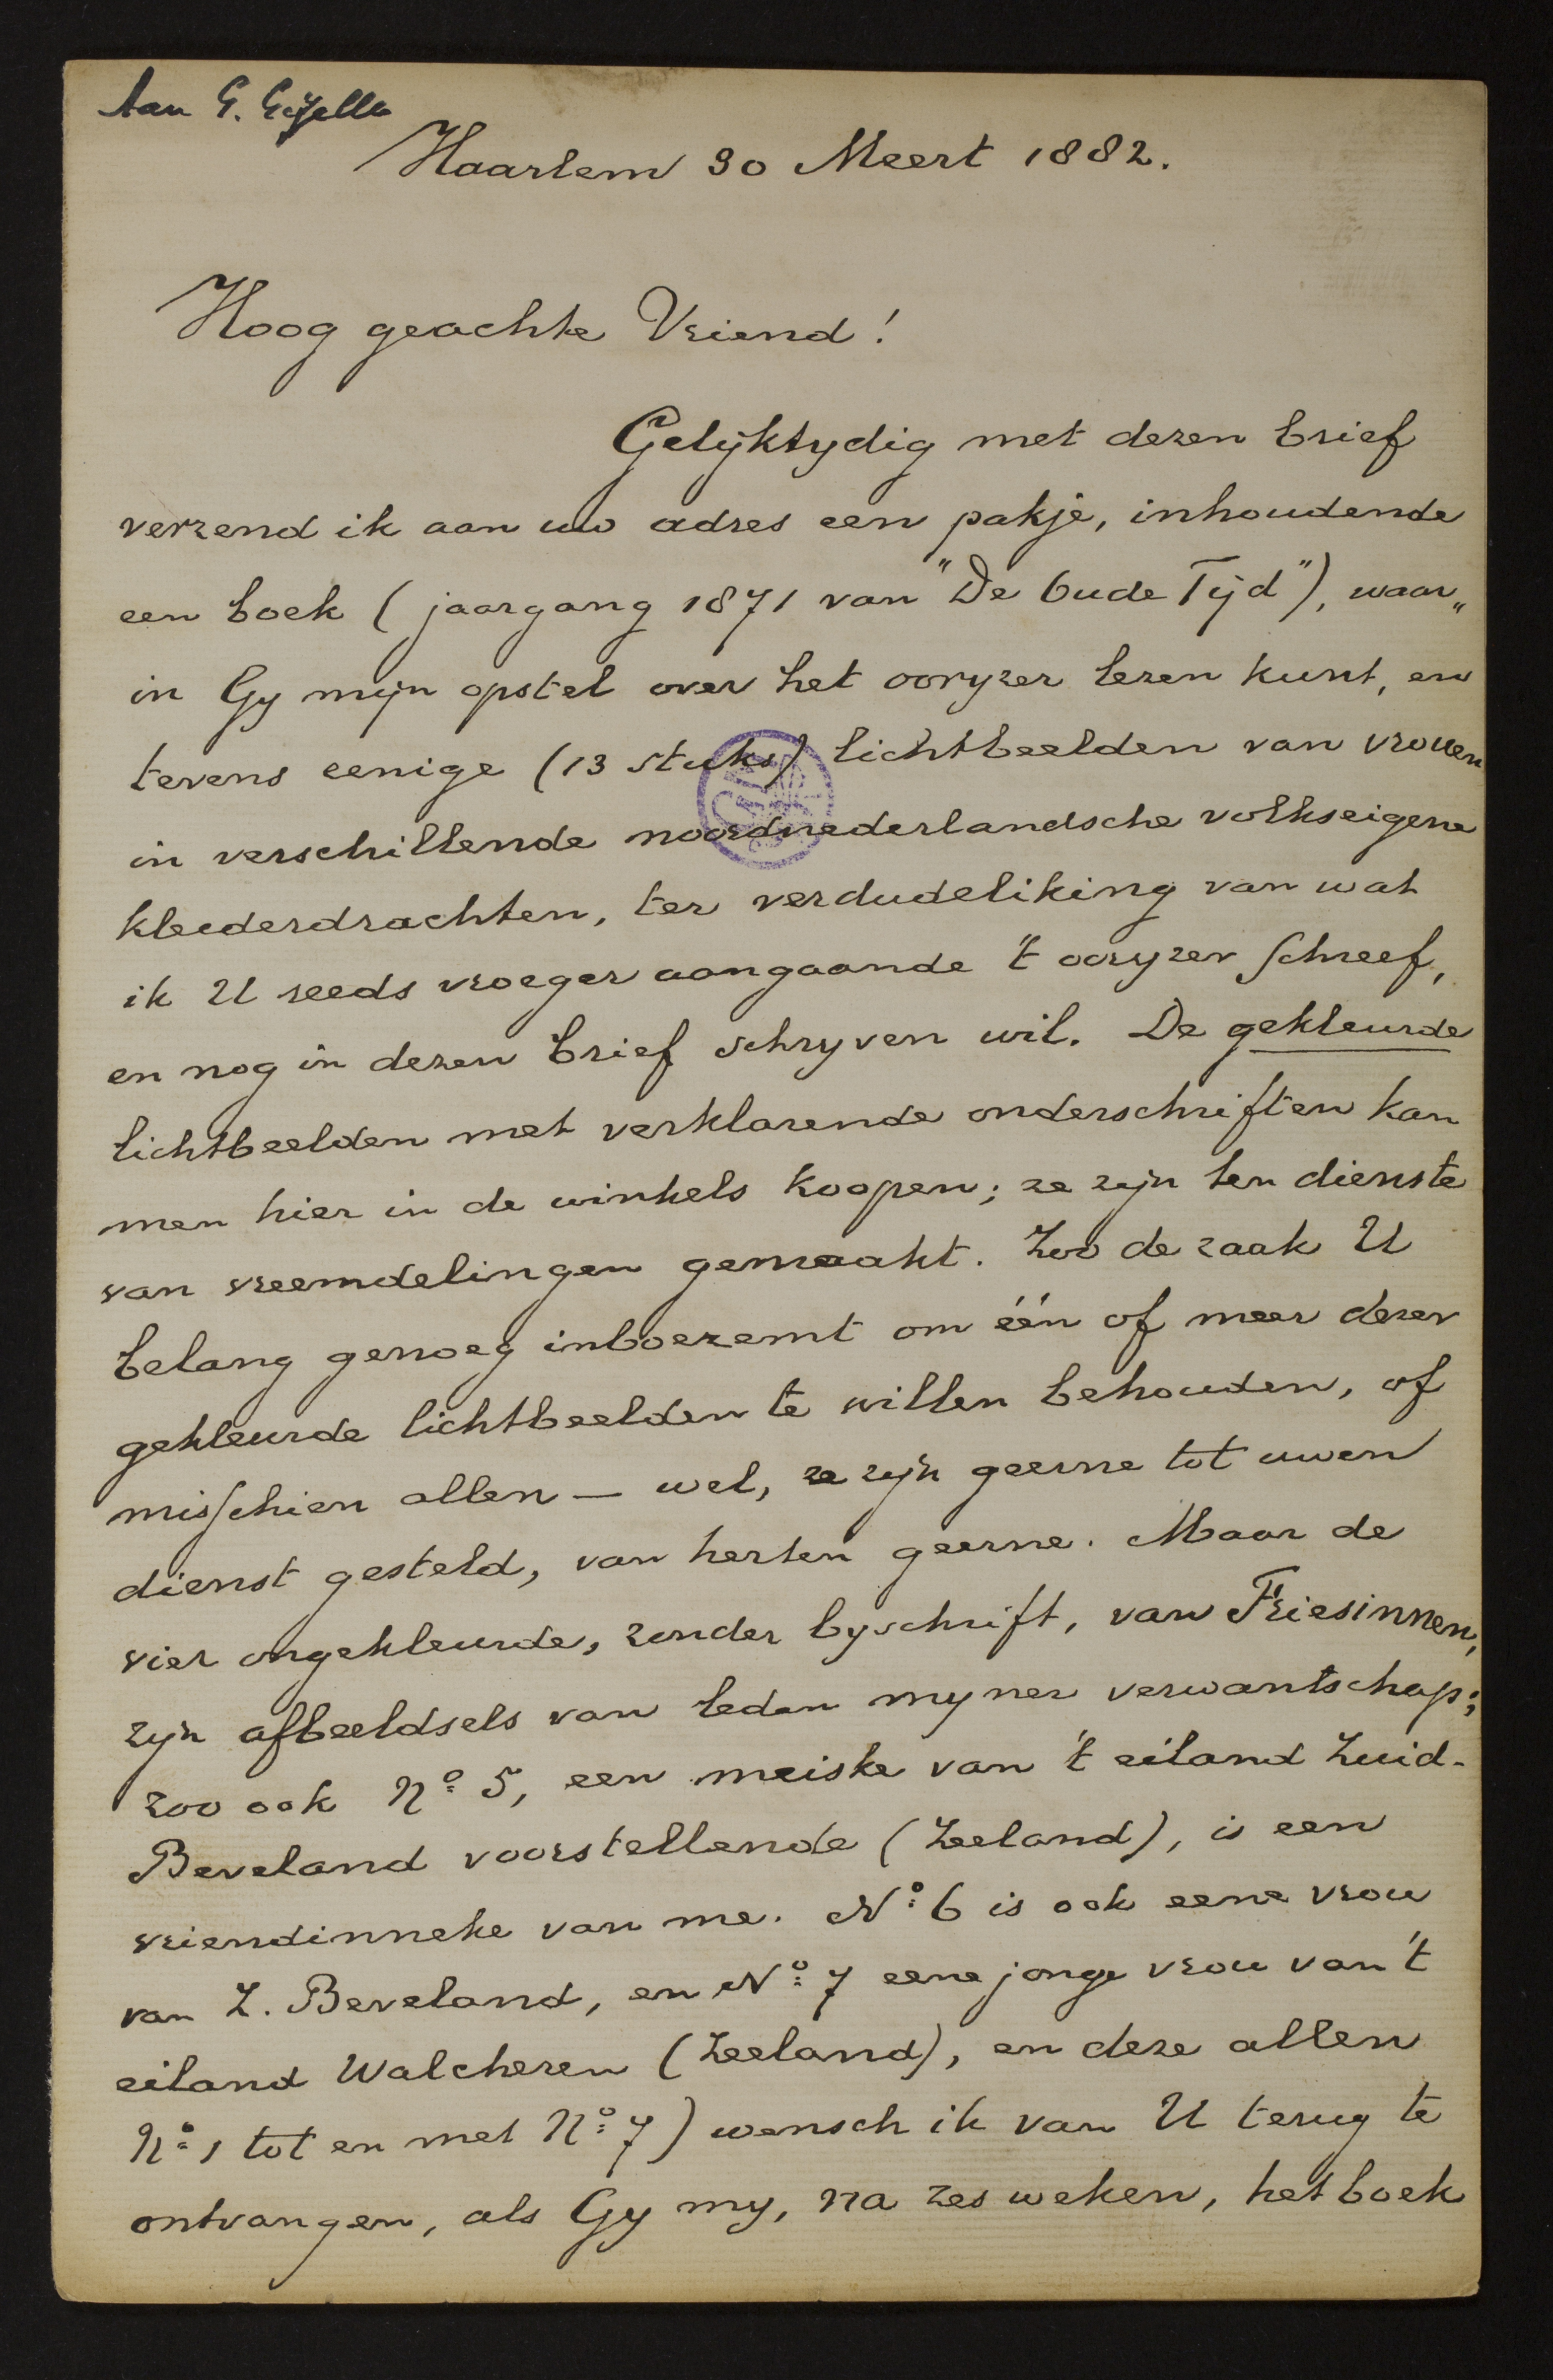 Aan G. Gezelle
Haarlem 30 Meert 1882.
Hoog geachte Vriend!
Gelijktydig met dezen brief
verzend ik aan uw adres een pakje, inhoudende
een boek (jaargang 1871 van "De Oude Tijd"), waar„
in Gy mijn opstel over het ooryzer lezen kunt, en
tevens eenige (13 stuks) lichtbeelden van vrouen
in verschillende noordnederlandsche volkseigene
kleederdrachten, ter verdudeliking van wat
ik U reeds vroeger aangaande 't ooryzer schreef,
en nog in dezen brief schryven wil. De gekleurde
lichtbeelden met verklarende onderschriften kan
men hier in de winkels koopen; ze zijn ten dienste
van vreemdelingen gemaakt. Zoo de zaak U
belang genoeg inboezemt om één of meer dezer
gekleurde lichtbeelden te willen behouden, of
misschien allen — wel, ze zijn geerne tot uwen
dienst gesteld, van herten geerne. Maar de
vier ongekleurde, zonder byschrift, van Friesinnen,
zijn afbeeldsels van leden myner verwantschap;
zoo ook No 5, een meiske van 't eiland Zuid-
Beveland voorstellende (Zeeland), is een
vriendinneke van me. No 6 is ook eene vrou
van Z. Beveland, en No 7 eene jonge vrou van 't
eiland Walcheren (Zeeland), en deze allen
No 1 tot en met No 7) wensch ik van U terug te
ontvangen, als Gy my, na zes weken, het boek